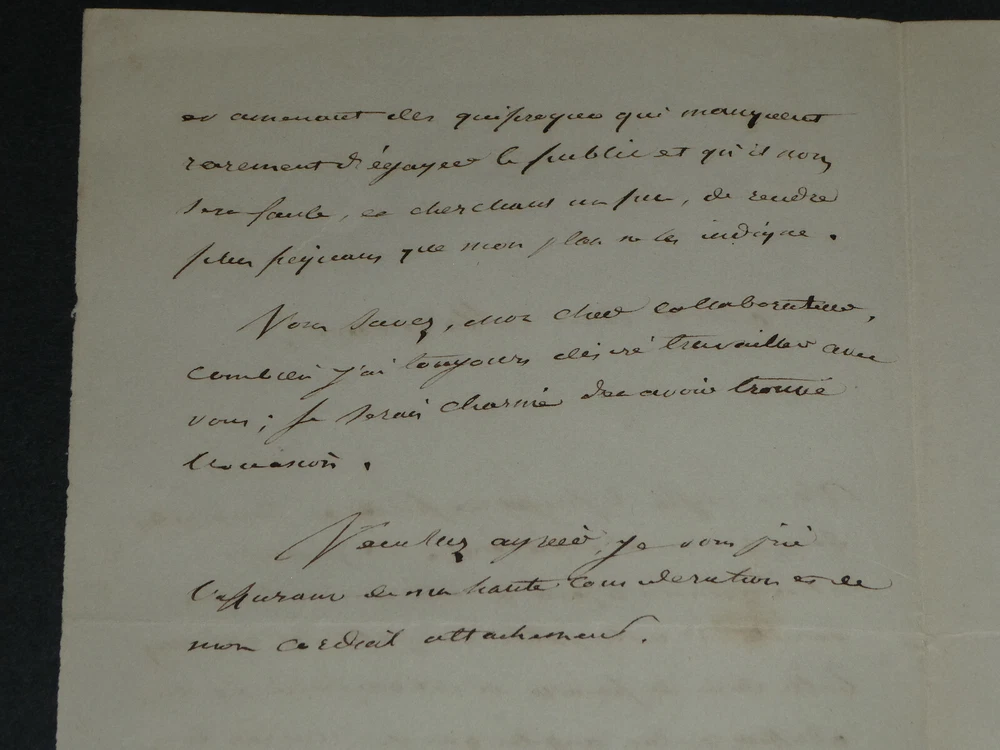 et amenant des quiproquo qui manquent
rarement d'égayer le public et qu'il nous
sera facile, en cherchant un peu, de rendre
plus piquans que mon plan ne les indique.
Vous savez, mon cher collaborateur,
combien j'ai toujours désiré travailler avec
vous ; je serai charmé d'en avoir trouvé
l'occasion.
Veuillez agréer, je vous prie
l'assurance de ma haute considération et de
mon cordial attachement.